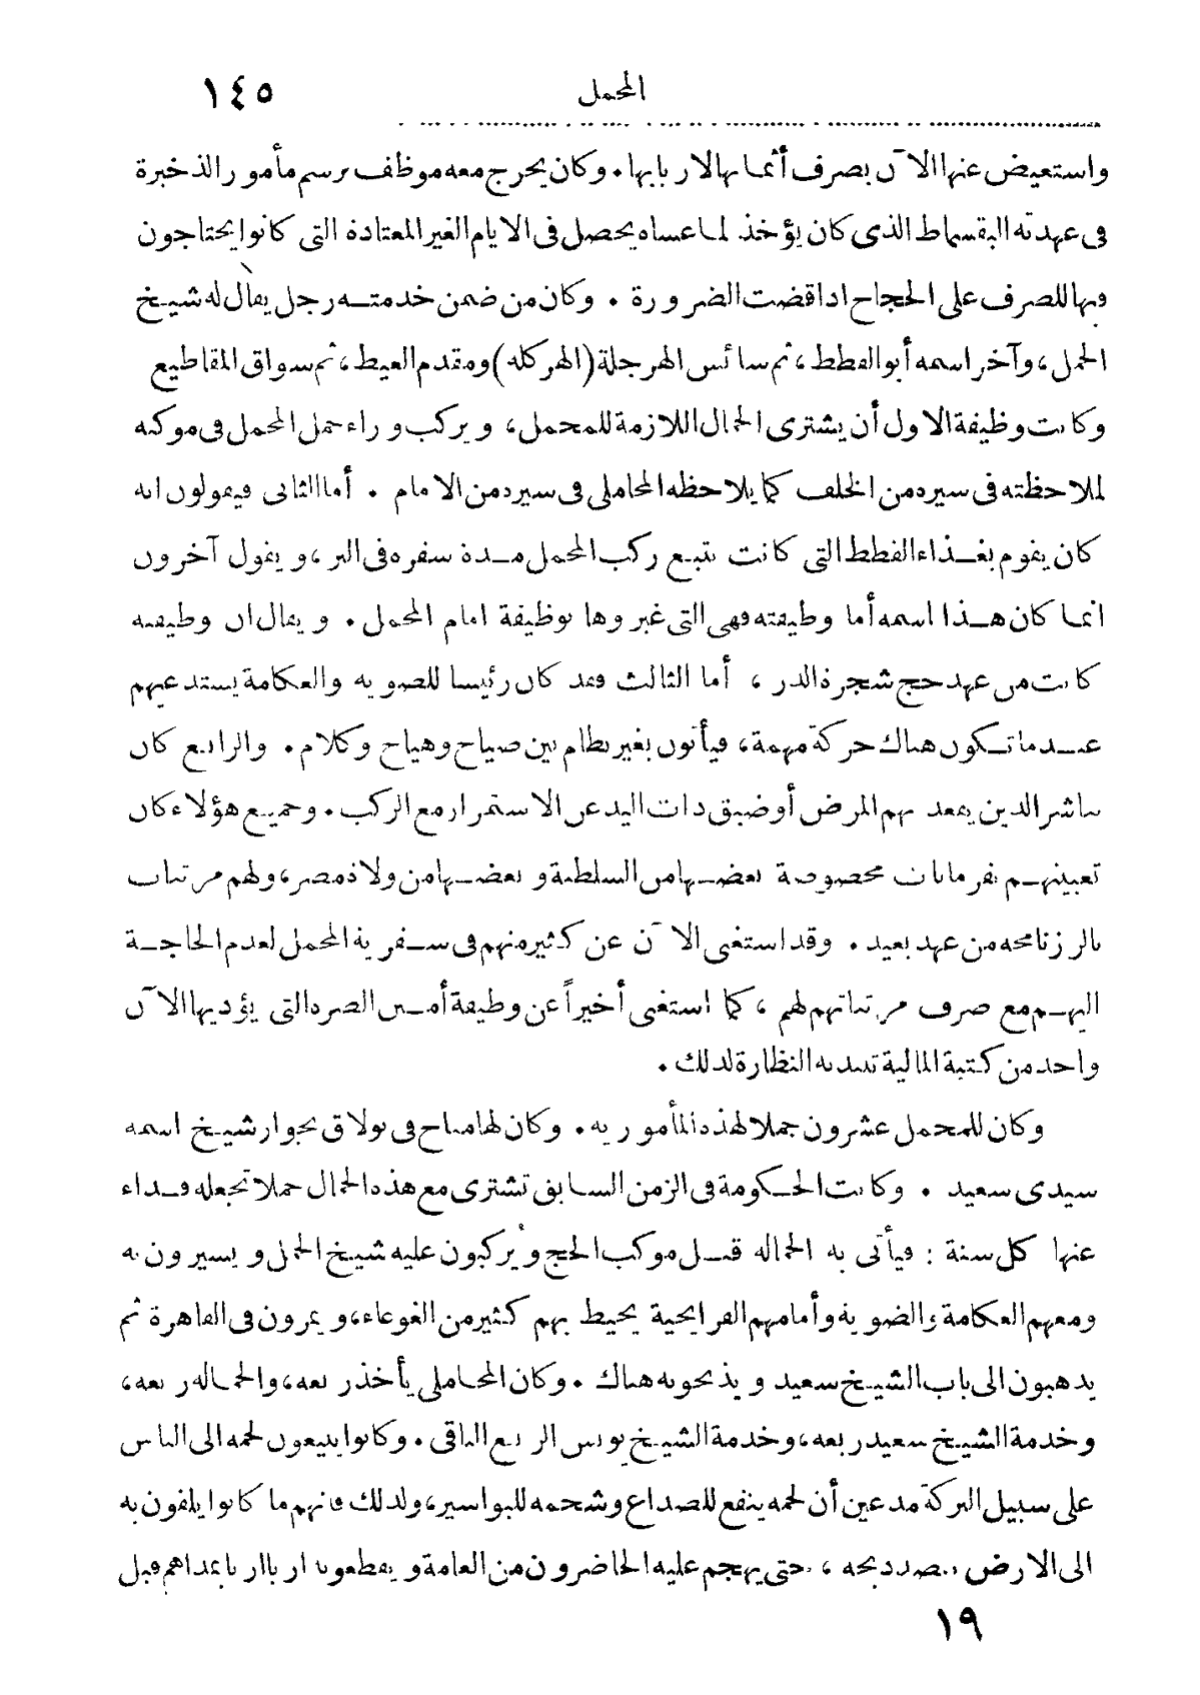 المحمل ١٤٥
واستعيض عنها الآن بصرف أثمانها لاربابها . وكان يخرج معه موظف برسم مأمور الذخيرة
فى عهدته البقسماط الذى كان يؤخذ لما عساه يحصل فى الايام الغير المعتادة التى كانوا يحتاجون
فيها للصرف على الحجاج اذا قضت الضرورة . وكان من ضمن خدمته رجل يقال له شيخ
الجمل، وآخر اسمه أبو القطط ، ثم سائس الهرجلة (الهركله) ومقدم العيط ، ثم سواق المقاطيع
وكانت وظيفة الاول أن يشترى الجمال اللازمة للمحمل، ويركب وراء جمل المحمل فى موكبه
لملاحظته فى سيره من الخلف كما يلاحظه المحاملى فى سيره من الامام . أما الثانى فيقولون انه
كان يقوم بغذاء القطط التى كانت تتبع ركب المحمل مدة سفره فى البر ، ويقول آخرون
انما كان هذا اسمه أما وظيفته فهى التى غيروها بوظيفة امام المحمل . ويقال ان وظيفته
كانت من عهد حج شجرة الدر ، أما الثالث فقد كان رئيسا للضويه والعكامة يستدعيهم
عندما تكون هناك حركة مهمة، فيأتون بغير نظام بين صياح وهياح وكلام . والرابع كان
يباشر الذين يقعد بهم المرض أو ضيق ذات اليد عن الاستمرار مع الركب . وجميع هؤلاء كان
تعيينهم بفرمانات مخصوصة بعضها من السلطنة و بعضها من ولاة مصر، ولهم مرتبات
بالرزنامجه من عهد بعيد . وقد استغنى الآن عن كثير منهم فى سفرية المحمل لعدم الحاجة
اليهم مع صرف مرتباتهم لهم ، كما استغنى أخيراً عن وظيفة أمين الصره التى يؤديها الآن
واحد من كتبة المالية تنتدبه النظارة لذلك .
وكان للمحمل عشرون جملا لهذه المأموريه . وكان لها مناح فى بولاق بجوار شيخ اسمه
سيدى سعيد . وكانت الحكومة فى الزمن السابق تشترى مع هذه الجمال جملا تجعله فداء
عنها كل سنة : فيأتى به الجماله قبل موكب الحج ويُركبون عليه شيخ الجمل ويسيرون به
ومعهم العكامة والضويه وأمامهم القرابحية يحيط بهم كثير من الغوغاء، ويمرون فى القاهرة ثم
يذهبون الى باب الشيخ سعيد ويذبحونه هناك . وكان المحاملى يأخذ ربعه، والجماله ربعه،
وخدمة الشيخ سعيد ربعه، وخدمة الشيخ يونس الربع الباقى . وكانوا يبيعون لحمه الى الناس
على سبيل البركة مدعين أن لحمه ينفع للصداع وشحمه للبواسير، ولذلك فانهم ما كانوا يلقون به
الى الارض بصدد ذبحه ، حتى يهجم عليه الحاضرون من العامة ويقطعونه اربا اربا بمداهم قبل
١٩